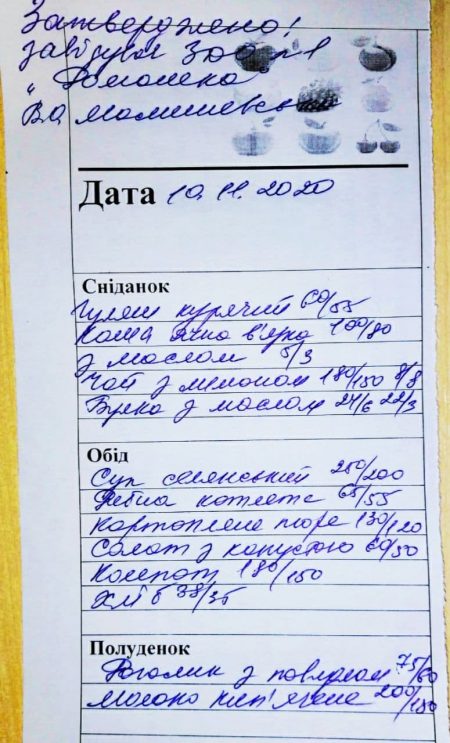 Затверджено!
завідувач ЗДО №1
"Ромашка"
В.Д.
Дата 10.11.2020
Сніданок
Гуляш курячий 60/55
Каша ячна в'язка 100/80
з маслом 5/3
Чай з лимоном 180/150 8/8
Булка з маслом 24/6 22/3
Обід
Суп селянський 250/200
Рибна котлета 65/55
Картопляне пюре 130/120
Салат з капустою 60/50
Компот 180/150
Хліб 38/35
Полуденок
Рогалик з повидлом 75/60
молоко кип'ячене 200/180